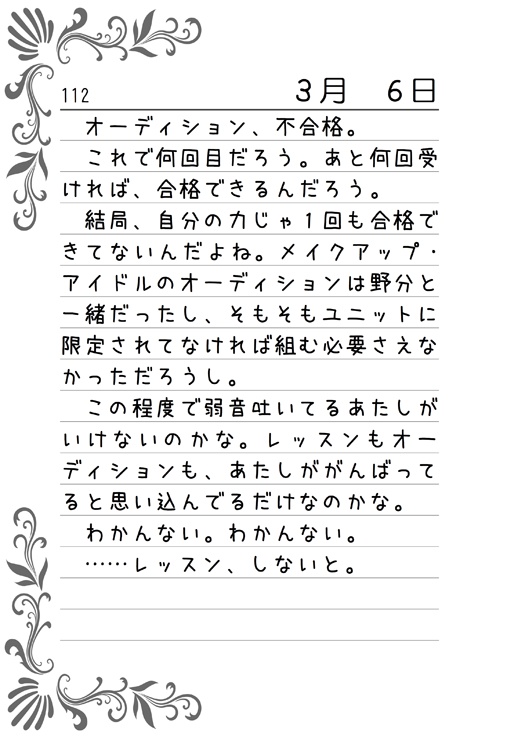 112
3月　6日
オーディション、不合格。
これで何回目だろう。あと何回受
ければ、合格できるんだろう。
結局、自分の力じゃ1回も合格で
きてないんだよね。メイクアップ・
アイドルのオーディションは野分と
一緒だったし、そもそもユニットに
限定されてなければ組む必要さえな
かっただろうし。
この程度で弱音吐いてるあたしが
いけないのかな。レッスンもオー
ディションも、あたしががんばって
ると思い込んでるだけなのかな。
わかんない。わかんない。
……レッスン、しないと。